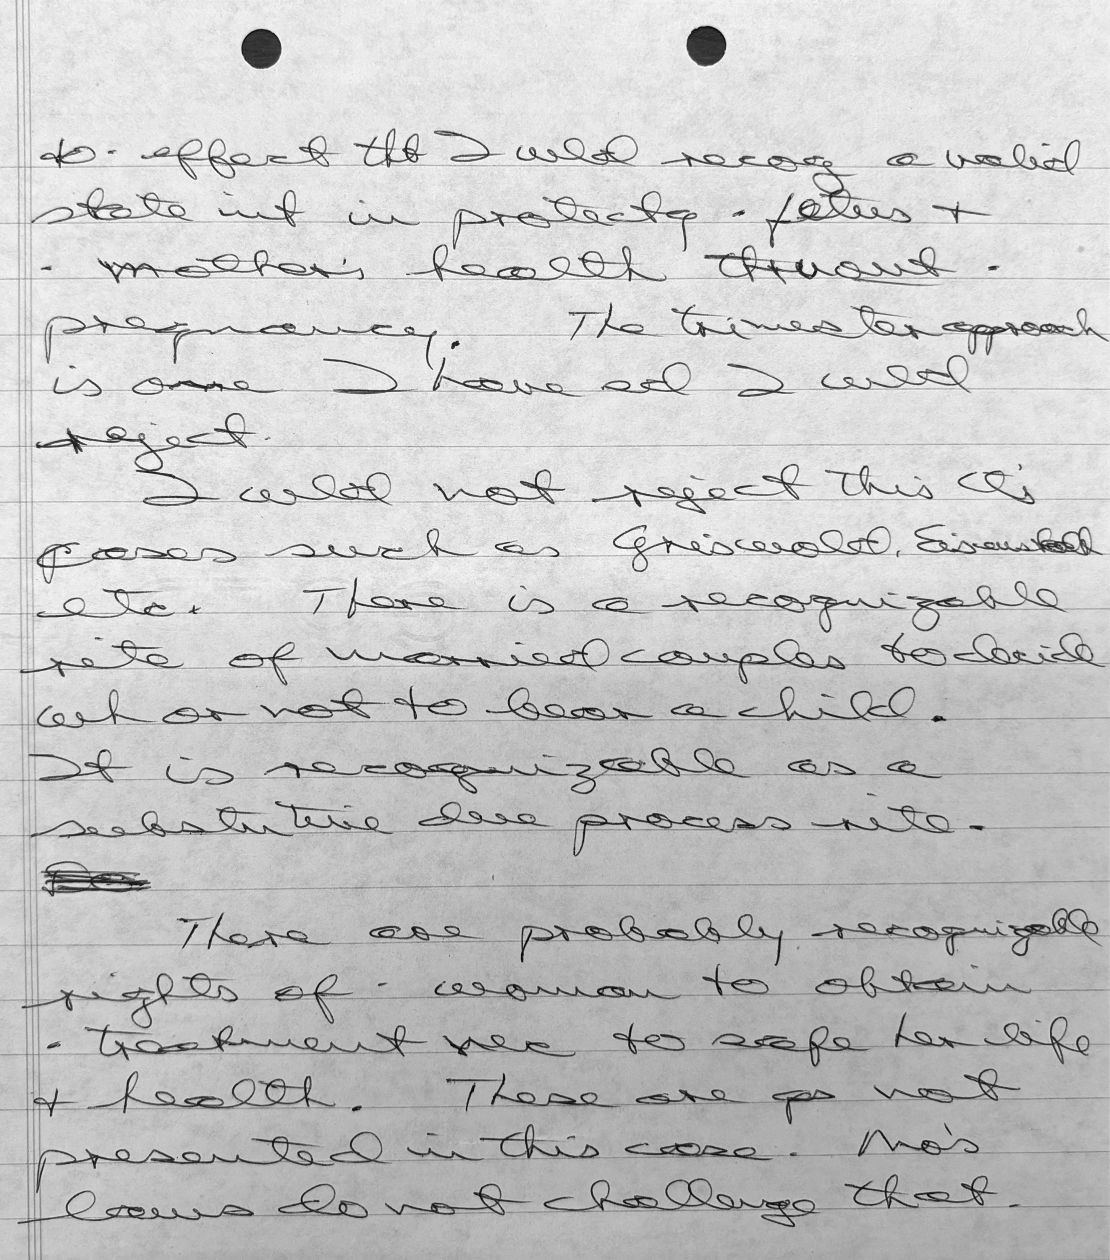 to · effect tht I wld recog a valid
state int in protectg · fetus +
· mother's health thruout ·
pregnancy. The trimester approach
is one I have and I wld
reject.
I wld not reject this Ct's
cases such as Griswold, Eisenstadt
etc. There is a recognizable
rite of married couples to decide
wh or not to bear a child.
It is recognizable as a
substntive due process rite.
There are probably recognizable
rights of · woman to obtain
· treatment nec to safe her life
+ health. These are qs not
presented in this case. Mo's
laws do not challenge that.